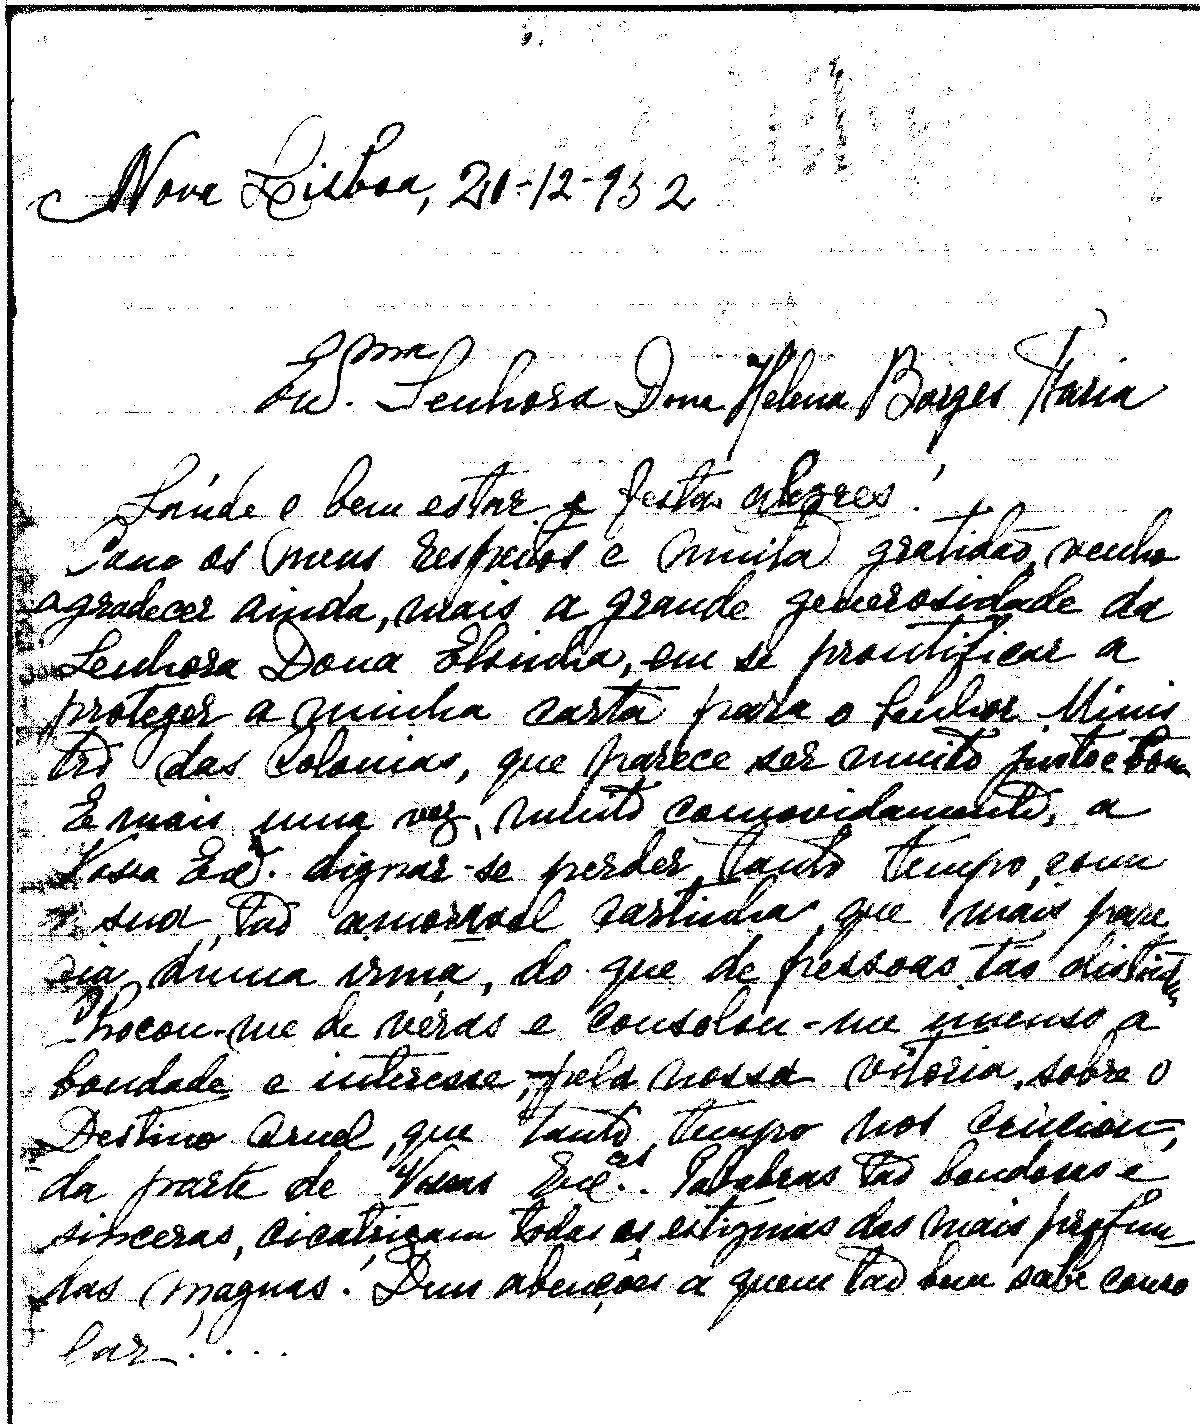 Nova Lisboa, 20-12-952
Exma. Senhora Dona Helena Borges Faria
Saúde e bem estar e festas alegres!
Como os meus respeitos e muita gratidão, venho
agradecer ainda, mais a grande generosidade da
Senhora Dona, em se prontificar a
proteger a minha carta para o Senhor Minis
tro das Colonias, que parece ser muito justo e bom
E mais uma vez, muito comovidamente, a
Vossa Excª. dignar-se perder, tanto tempo, com
sua, tão amoravel cartinha, que mais pare
cia, duma irmã, do que de pessoas, tão distintas
Chocou-me de véras e consolou-me imenso a
bondade e interesse, pela nossa vitoria, sobre o
Destino Cruel, que tanto, tempo nos cruciou,
da parte de Vossas Excªs. Palabras tão bondosas e
sinceras, cicatrizam todas os estigmas das mais profun
das magnas! Deus abençõe a quem tão bem sabe conso
lar!....